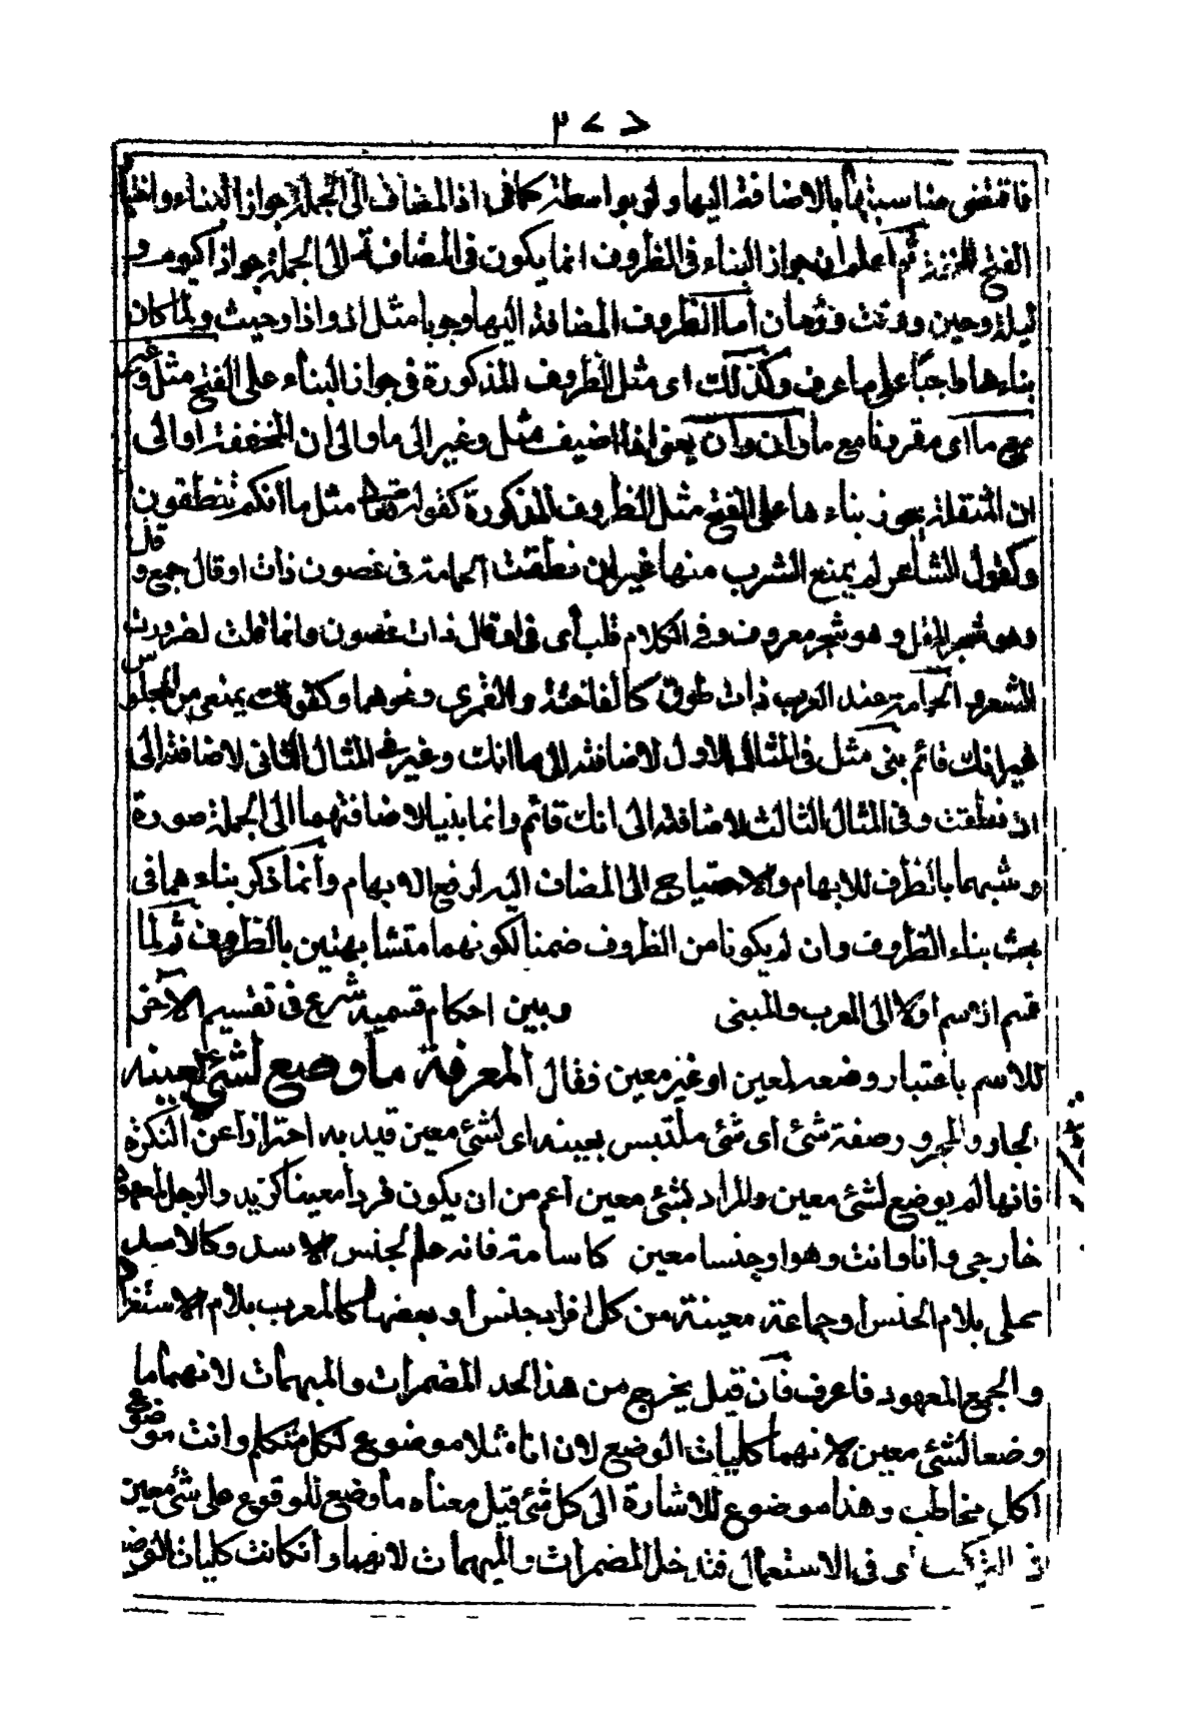 ٢٧٣
فاقتضى مناسبتها بالاضافة اليها ولو بواسطة كما فى اذ المضاف الى الجملة جواز البناء و
الفتح للخفة ثم اعلم ان جواز البناء فى الظروف انما يكون فى المضافة الى الجملة جواز اكيوم و
ليلة وحين ووقت وزمان أما الظروف المضافة اليها وجوبا مثل اذ واذا وحيث ولما كان
بناءها واجبا على ما عرف وكذلك اى مثل الظروف المذكورة فى جواز البناء على الفتح مثل وغير
مع ما اى مقرونا مع ما وان وأن يعنى اذا اضيف مثل وغير الى ما والى ان المخففة او الى
ان المثقلة يجوز بناءها على الفتح مثل الظروف المذكورة كقوله مثل ما أنكم تنطقون
وكقول الشاعر لم يمنع الشرب منها غير ان نطقت الحمامة فى غصون ذات اوقال جمع وقل
وهو شجر المقل وهو شجر معروف وفى الكلام قلب أى فى اوقال ذات غصون وانما قلت لضرورت
الشعر و الحمامة عند العرب ذات طوق كالفاختة والقمرى ونحوهما وكقولك يمنعنى من الجلوس
غير انك قائم بنى مثل فى المثال الاول لاضافته الى ما انك وغير فى المثال الثانى لاضافته الى
ان نطقت وفى المثال الثالث لاضافته الى انك قائم وانما بنيا لاضافتهما الى الجملة صورة
وشبهما بالظرف للابهام والاحتياج الى المضاف اليه لرفع الابهام وأنما ذكر بناءهما فى
بحث بناء الظروف وان لم يكونا من الظروف ضمنا لكونهما متشابهتين بالظروف ثم لما
قسم الاسم اولا الى المعرب والمبنى وبين احكام قسميه شرع فى تقسيم الآخر
للاسم باعتبار وضعه لمعين او غير معين فقال المعرفة ما وضع لشئ بعينه
الجار والمجرور صفة شئ اى شئ ملتبس بعينه اى لشئ معين قيد به احترازا عن النكرة
فانها لم يوضع لشئ معين والمراد بشئ معين أعم من ان يكون فردا معينا كزيد والرجل المعهود
خارجى وانا وانت وهو او جنسا معين كاسامة فانه علم لجنس الاسد وكالاسد
محلى بلام الجنس او جماعة معينة من كل افراد جنس او بعضها كالمعرب بلام الاستغراق
والجمع المعهود فاعرف فان قيل يخرج من هذا الحد المضمرات والمبهمات لانهما ما
وضعا لشئ معين لانهما كليات الوضع لان انا مثلا موضوع لكل متكلم وانت موضوع
لكل مخاطب وهذا موضوع للاشارة الى كل شئ قيل معناه ما وضع للوقوع على شئ معين
فى التركيب أى فى الاستعمال فتدخل المضمرات والمبهمات لانهما وأنكانت كليات الوضع